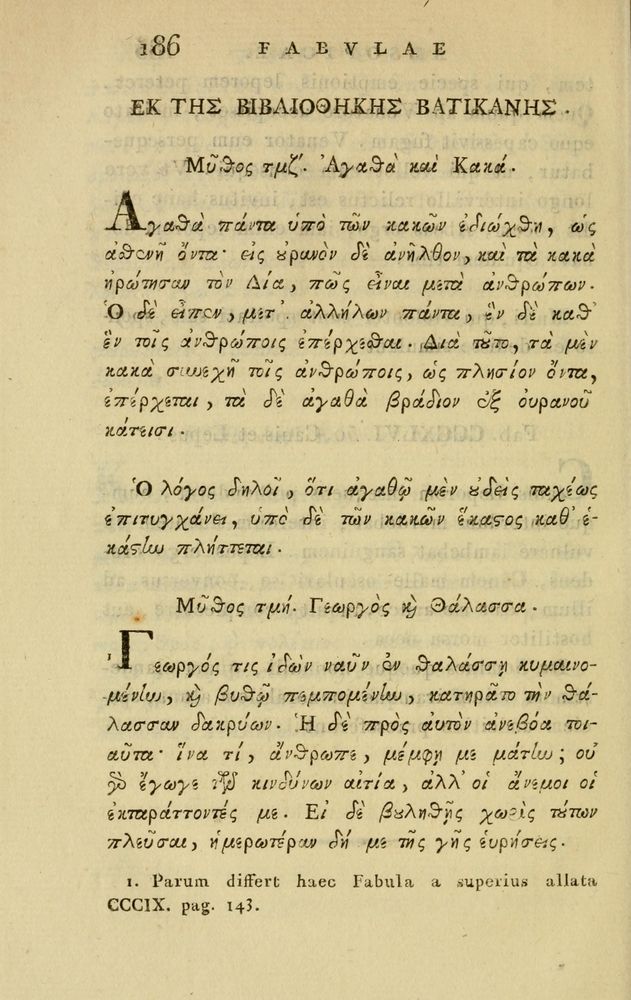 186 FABVLAE
ΕΚ ΤΗΣ ΒΙΒΛΙΟΘΗΚΗΣ ΒΑΤΙΚΑΝΗΣ.
Μῦθος τμζʹ. Ἀγαθὰ καὶ Κακά.
Ἀγαθὰ πάντα ὑπὸ τῶν κακῶν ἐδιώχθη, ὡς
ἀσθενῆ ὄντα· εἰς ȣ̓ρανὸν δὲ ἀνῆλθον, καὶ τὰ κακὰ
ἠρώτησαν τὸν Δία, πῶς εἶναι μετὰ ἀνθρώπων.
Ὁ δὲ εἶπεν, μετ' ἀλλήλων πάντα, ἓν δὲ καθ'
ἓν τοῖς ἀνθρώποις ἐπέρχεσθαι. Διὰ τȣ͂το, τὰ μὲν
κακὰ συνεχῆ τοῖς ἀνθρώποις, ὡς πλησίον ὄντα,
ἐπέρχεται, τὰ δὲ ἀγαθὰ βράδιον ἐξ ουρανοῦ
κάτεισι.
Ὁ λόγος δηλοῖ, ὅτι ἀγαθῷ μὲν ȣ̓δεὶς ταχέως
ἐπιτυγχάνει, ὑπὸ δὲ τῶν κακῶν ἕκαϛος καθ' ἑ-
κάϛην πλήττεται.
Μῦθος τμή. Γεωργὸς ϗ Θάλασσα.
Γεωργός τις ἰδὼν ναῦν ἐν θαλάσσῃ κυμαινο-
μένην, ϗ βυθῷ πεμπομένην, κατηρᾶτο τὴν θά-
λασσαν δακρύων. Ἡ δὲ πρὸς αυτὸν ἀνεβόα τοι-
αῦτα· ἵνα τί, ἄνθρωπε, μέμφῃ με μάτην; οὐ
γὰρ ἔγωγε τῶν κινδύνων αἰτία, ἀλλ' οἱ ἄνεμοι οἱ
ἐκταράττοντές με. Εἰ δὲ βȣληθῇς χωρὶς τȣ́των
πλεῦσαι, ἡμερωτέραν δή με τῆς γῆς ἑυρήσεις.
1. Parum differt haec Fabula a superius allata
CCCIX. pag. 143.